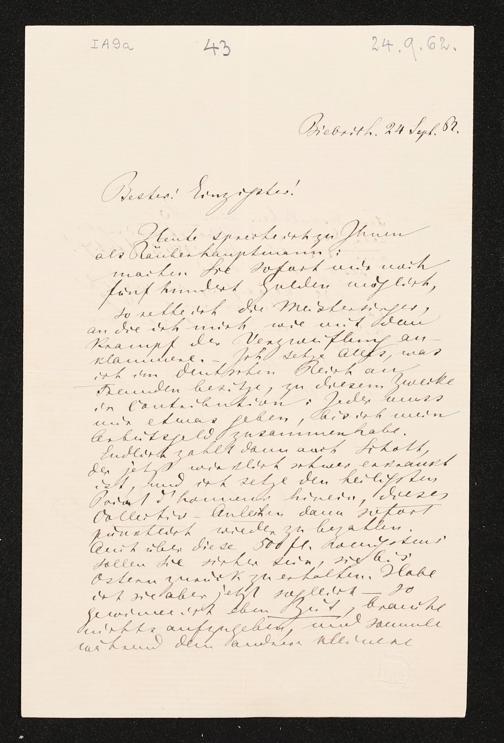 IA9a
43
24.9.62.
Biebrich. 24 Sept. 62.
Bester! Einzigster!
Heute spreche ich zu Ihnen
als Räuberhauptmann:
machen Sie sofort mir noch
fünfhundert Gulden möglich,
so rette ich die Meistersinger,
an die ich mich wie mit dem
Krampf der Verzweiflung an-
klammere. – Ich setze Alles, was
ich im deutschen Reich an
Freunden besitze, zu diesem Zwecke
in Contribution: Jeder muss
mir etwas geben, bis ich mein
Arbeitsgeld zusammenhabe.
Endlich zahlt dann auch Schott,
der jetzt wirklich schwer erkrankt
ist, und ich setze den heiligsten
Point d'honneur hinein, dieses
Collectiv-Anlehen dann sofort
pünktlich wieder zu bezahlen.
Auch über diese 500 fl.
sollen Sie sicher sein, sie bis
Ostern zurück zu erhalten. Habe
ich sie aber jetzt sogleich – so
gewinne ich eben Zeit, brauche
nichts aufzugeben, und sammle
während dem andere kleinere